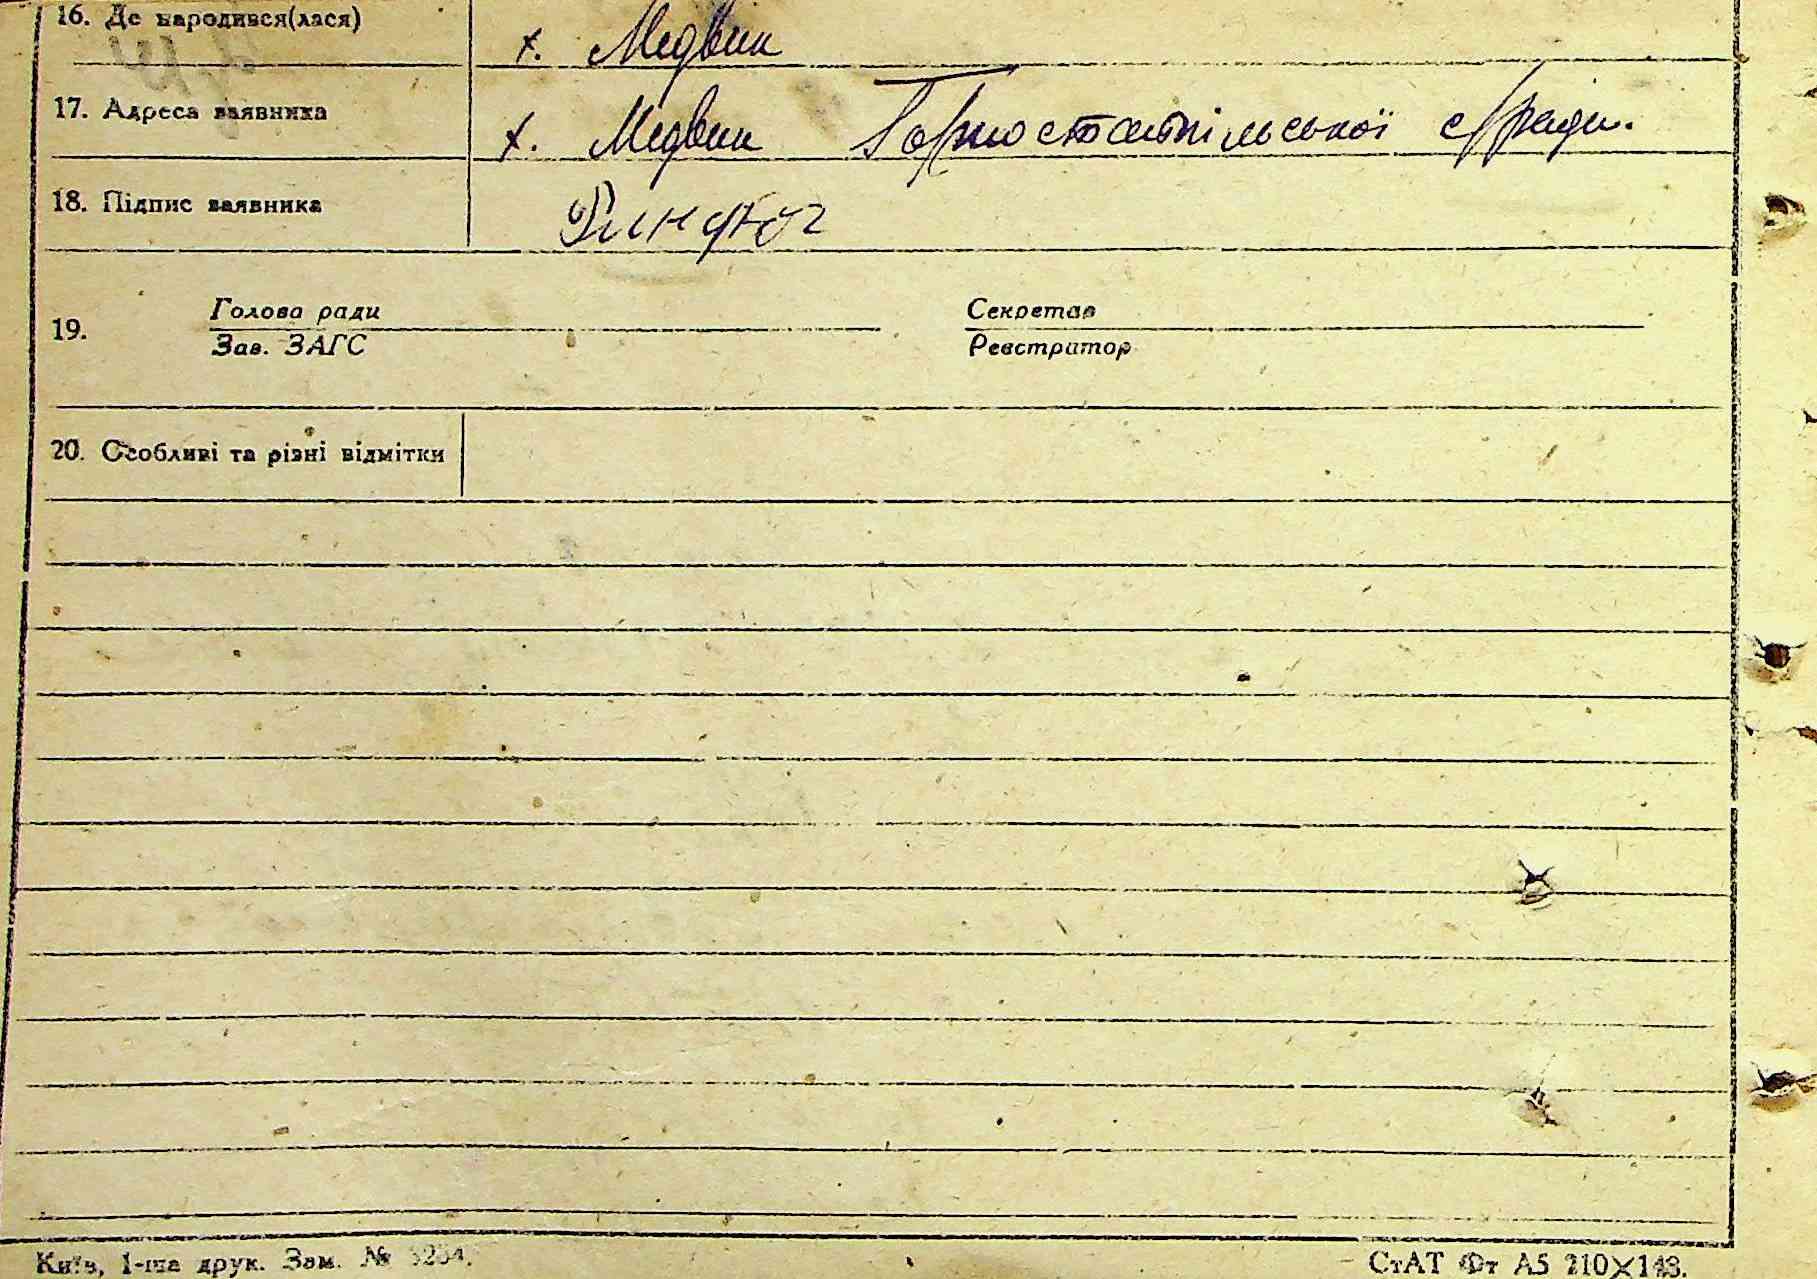 16. Де народився(лася) х. Медвин
17. Адреса заявника х. Медвин Горностайпільської с/ради.
18. Підпис заявника
19. Голова ради Секретар
Зав. ЗАГС Реєстратор
20. Особливі та різні відмітки
Київ, 1-ша друк. Зам. №
СтАТ Фт А5 210×148.